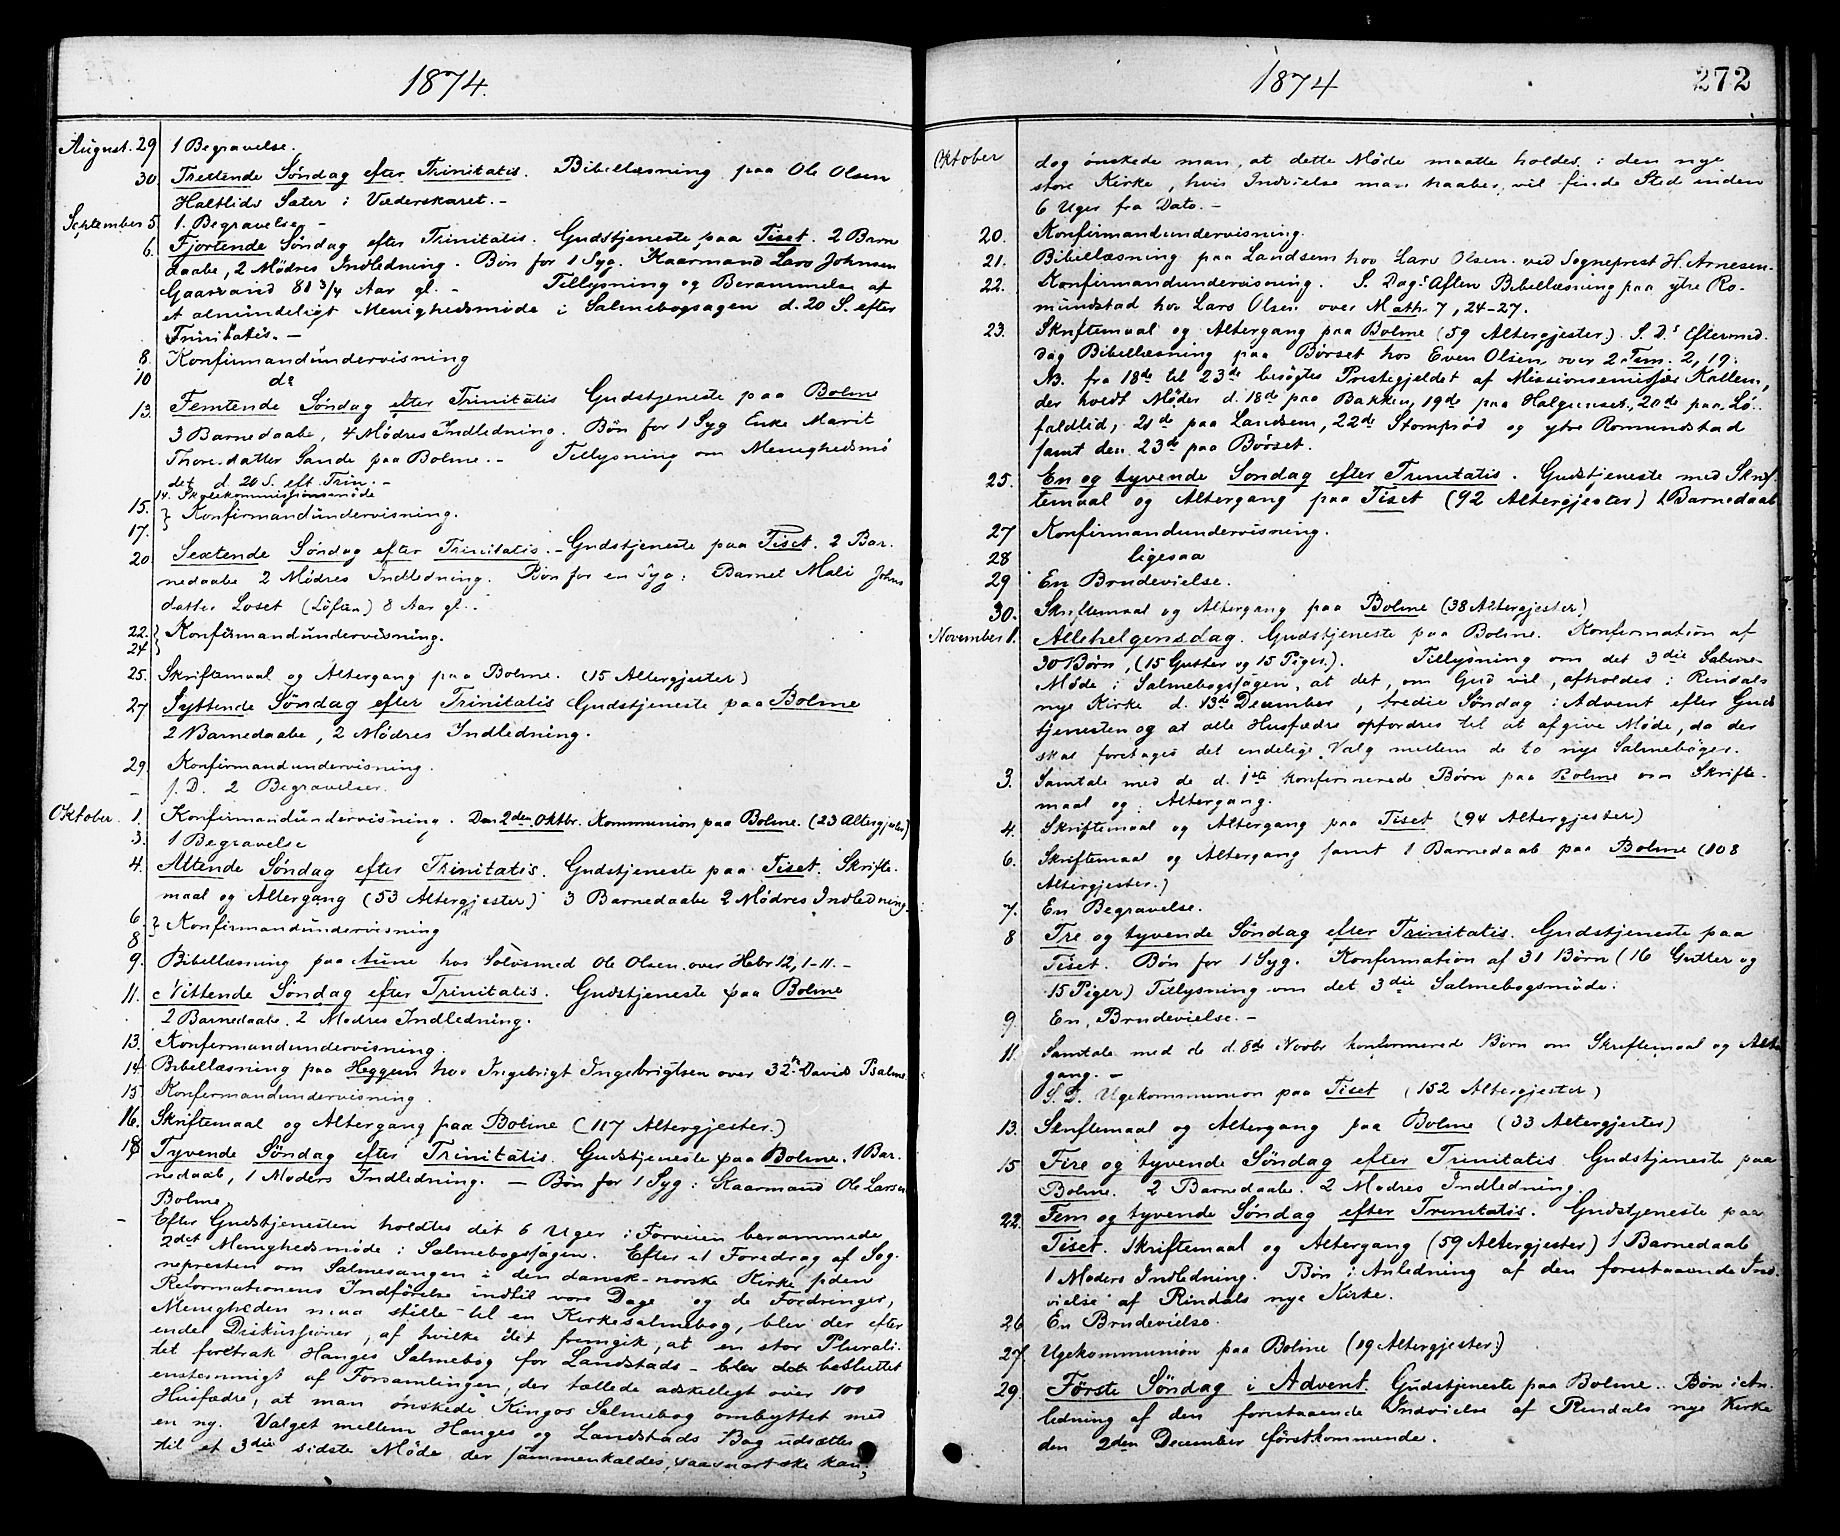 1874.
August. 29 1 Begravelse.
30. Trettende Søndag efter Trinitatis. Bibellæsning paa Ole Olsen
Haltlids Sæter i Væderskaret.-
September 5. 1. Begravelse -
6. Fjortende Søndag efter Trinitatis. Gudstjeneste paa Tiset. 2 Barne
daabe, 2 Mødres Indledning. Bøn for 1 Syg. Kaarmand Lars Johnsen
Gaasvand 81 3/4 Aar gl. - Tillysning og Berammelse af
et almindeligt Menighedsmøde i Salmebogsagen d. 20 S. efter
Trinitatis. -
8. Konfirmandundervisning
10 do
13. Femtende Søndag efter Trinitatis Gudstjeneste paa Bolme
3 Barnedaabe, 4 Mødres Indledning. Bøn for 1 Syg Enke Marit
Thoresdatter Sande paa Bolme. - Tillysning om Menighedsmø
det d. 20 S. eft. Trin. -
14. Skolekommissionsmøde
15. } Konfirmandundervisning.
17.
20 Sextende Søndag efter Trinitatis. - Gudstjeneste paa Tiset. 2 Bar.
nedaabe 2 Mødres Indledning. Bøn for en Syg: Barnet Mali Johns
datter Løset (Løften) 8 Aar gl..
22. } Konfirmandundervisning.
24
25. Skriftemaal og Altergang paa Bolme. (15 Altergjester)
27 Syttende Søndag efter Trinitatis Gudstjeneste paa Bolme
2 Barnedaabe, 2 Mødres Indledning.
29. Konfirmandundervisning.
- s. D. 2 Begravelser.
Oktober. 1. Konfirmandundervisning. Den 2den Oktbr. Kommunion paa Bolme. (23 Altergjester)
3. 1 Begravelse
4. Attende Søndag efter Trinitatis. Gudstjeneste paa Tiset. Skrifte.
maal og Altergang (53 Altergjester) 3 Barnedaabe 2 Mødres Indledning.
6. } Konfirmandundervisning
8
9. Bibellæsning paa Aune hos Sølvsmed Ole Olsen over Hebr 12, 1-11. -
11. Nittende Søndag efter Trinitatis. Gudstjeneste paa Bolme
2 Barnedaabe. 2 Mødres Indledning.
13. Konfirmandundervisning.
14 Bibellæsning paa Heggem hos Ingebrigt Ingebrigtsen over 32te Davids Psalme
15 Konfirmandundervisning.
16. Skriftemaal og Altergang paa Bolme (117 Altergjester.)
18 Tyvende Søndag efter Trinitatis. Gudstjeneste paa Bolme. 1 Bar.
nedaab, 1 Moders Indledning. - Bøn for 1 Syg: Kaarmand Ole Larsen
Bolme.
- Efter Gudstjenesten holdtes det 6 Uger i Forveien berammede
2det Menighedsmøde i Salmebogssagen. Efter et Foredrag af Sog.
nepresten om Salmesangen i den dansk-norske Kirke siden
Reformationens Indførelse indtil vore Dage og de Fordringer,
Menigheden maa stille til en Kirkesalmebog, blev der efter
endel Diskussioner, af hvilke det fremgik, at en stor Plurali.
tet foretrak Hauges Salmebog for Landstads - blev det besluttet
enstemmigt af Forsamlingen, der tællede adskilligt over 100
Husfædre, at man ønskede Kingos Salmebog ombyttet med
en ny. Valget mellem Hauges og Landstads Bog udsættes
til et 3die sidste Møde, der sammenkaldes, saasnart ske kan;
1874 272
Oktober dog ønskede man, at dette Møde maatte holdes i den nye
store Kirke, hvis Indvielse man haaber, vil finde Sted inden
6 Uger fra Dato. -
20. Konfirmandundervisning.
21. Bibellæsning paa Landsem hos Lars Olsen ved Sogneprest H. Arnesen.
22. Konfirmandundervisning. S. Dags Aften Bibellæsning paa ytre Ro-
mundstad hos Lars Olsen over Math. 7, 24-27.
23. Skriftemaal og Altergang paa Bolme (59 Altergjester). S. Ds Eftermid.
dag Bibellæsning paa Børset hos Even Olsen over 2 Tim. 2, 19.
NB. fra 18de til 23de besøgtes Prestegjeldet af Missionsemissær Kallem,
der holdt Møder d. 18de paa Bakken, 19de paa Halgunset, 20de paa Lø.
faldlid, 21de paa Landsem, 22de Stomprød og ytre Romundstad
samt den 23de paa Børset.
25. En og tyvende Søndag efter Trinitatis. Gudstjeneste med Skrif.
temaal og Altergang paa Tiset (92 Altergjester) 1 Barnedaab
27 Konfirmandundervisning.
28 ligesaa
29 En Brudevielse.
30. Skriftemaal og Altergang paa Bolme (38 Altergjester)
November 1. Allehelgensdag. Gudstjeneste paa Bolme. Konfirmation af
30 Børn, (15 Gutter og 15 Piger.). Tillysning om det 3die Salme-
Møde i Salmebogssagen, at det, om Gud vil, afholdes i Rindals
nye Kirke d. 13de December, tredie Søndag i Advent efter Guds
tjenesten og at alle Husfædre opfordres til at afgive Møde, da der
skal foretages det endelige Valg mellem de to nye Salmebøger.
3. Samtale med de d. 1ste konfirmerede Børn paa Bolme om Skrifte-
maal og Altergang.
4. Skriftemaal og Altergang paa Tiset (94 Altergjester)
6. Skriftemaal og Altergang samt 1 Barnedaab paa Bolme (108
Altergjester.)
7. En Begravelse.
8 Tre og tyvende Søndag efter Trinitatis. Gudstjeneste paa
Tiset. Bøn for 1 Syg. Konfirmation af 31 Børn (16 Gutter og
15 Piger) Tillysning om det 3die Salmebogsmøde.
9. En Brudevielse. -
11. Samtale med de d. 8de Novbr konfirmerede Børn om Skriftemaal og Alter
gang. -
S. D. Ugekommunion paa Tiset (152 Altergjester)
13. Skriftemaal og Altergang paa Bolme (33 Altergjester)
15 Fire og tyvende Søndag efter Trinitatis Gudstjeneste paa
Bolme. 2 Barnedaabe. 2 Mødres Indledning.
22. Fem og tyvende Søndag efter Trinitatis. Gudstjeneste paa
Tiset. Skriftemaal og Altergang (59 Altergjester) 1 Barnedaab
1 Moders Indledning. Bøn i Anledning af den forestaaende Ind.
vielse af Rindals nye Kirke.
26 En Brudevielse.
27. Ugekommunion paa Bolme (19 Altergjester.)
29. Første Søndag i Advent. Gudstjeneste paa Bolme. Bøn i An.
ledning af den forestaaende Indvielse af Rindals nye Kirke
den 2den December førstkommende.